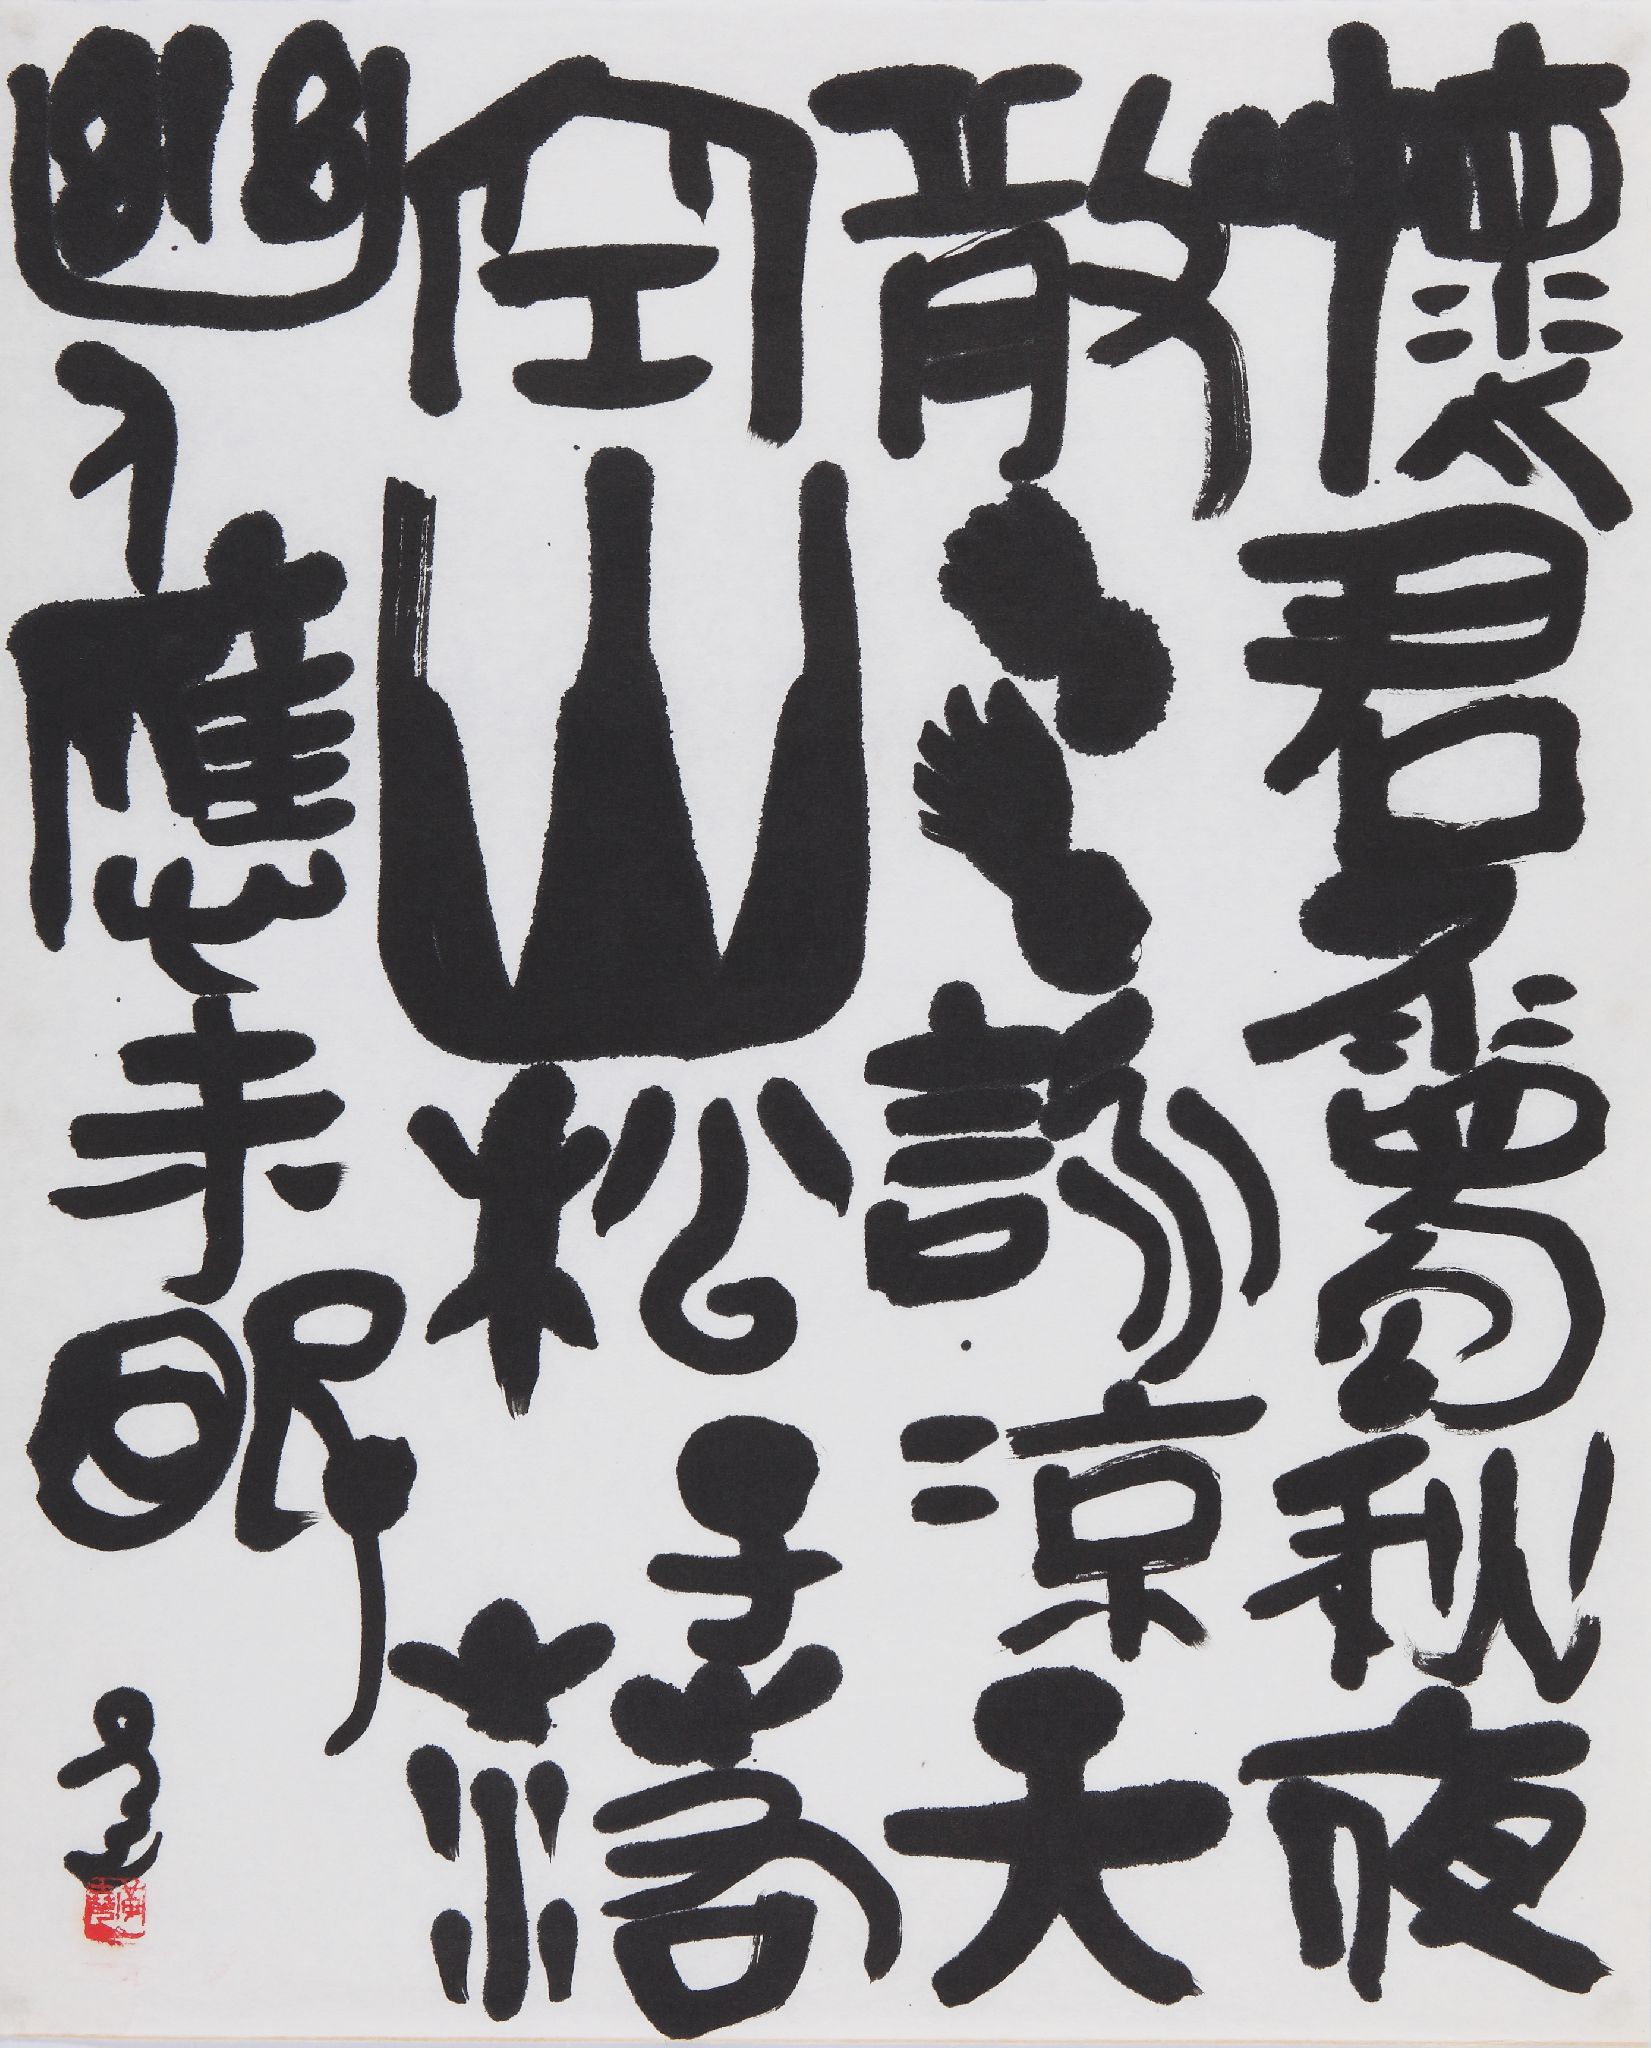 懷君屬秋夜
散步詠涼天
空山松子落
幽人應未眠